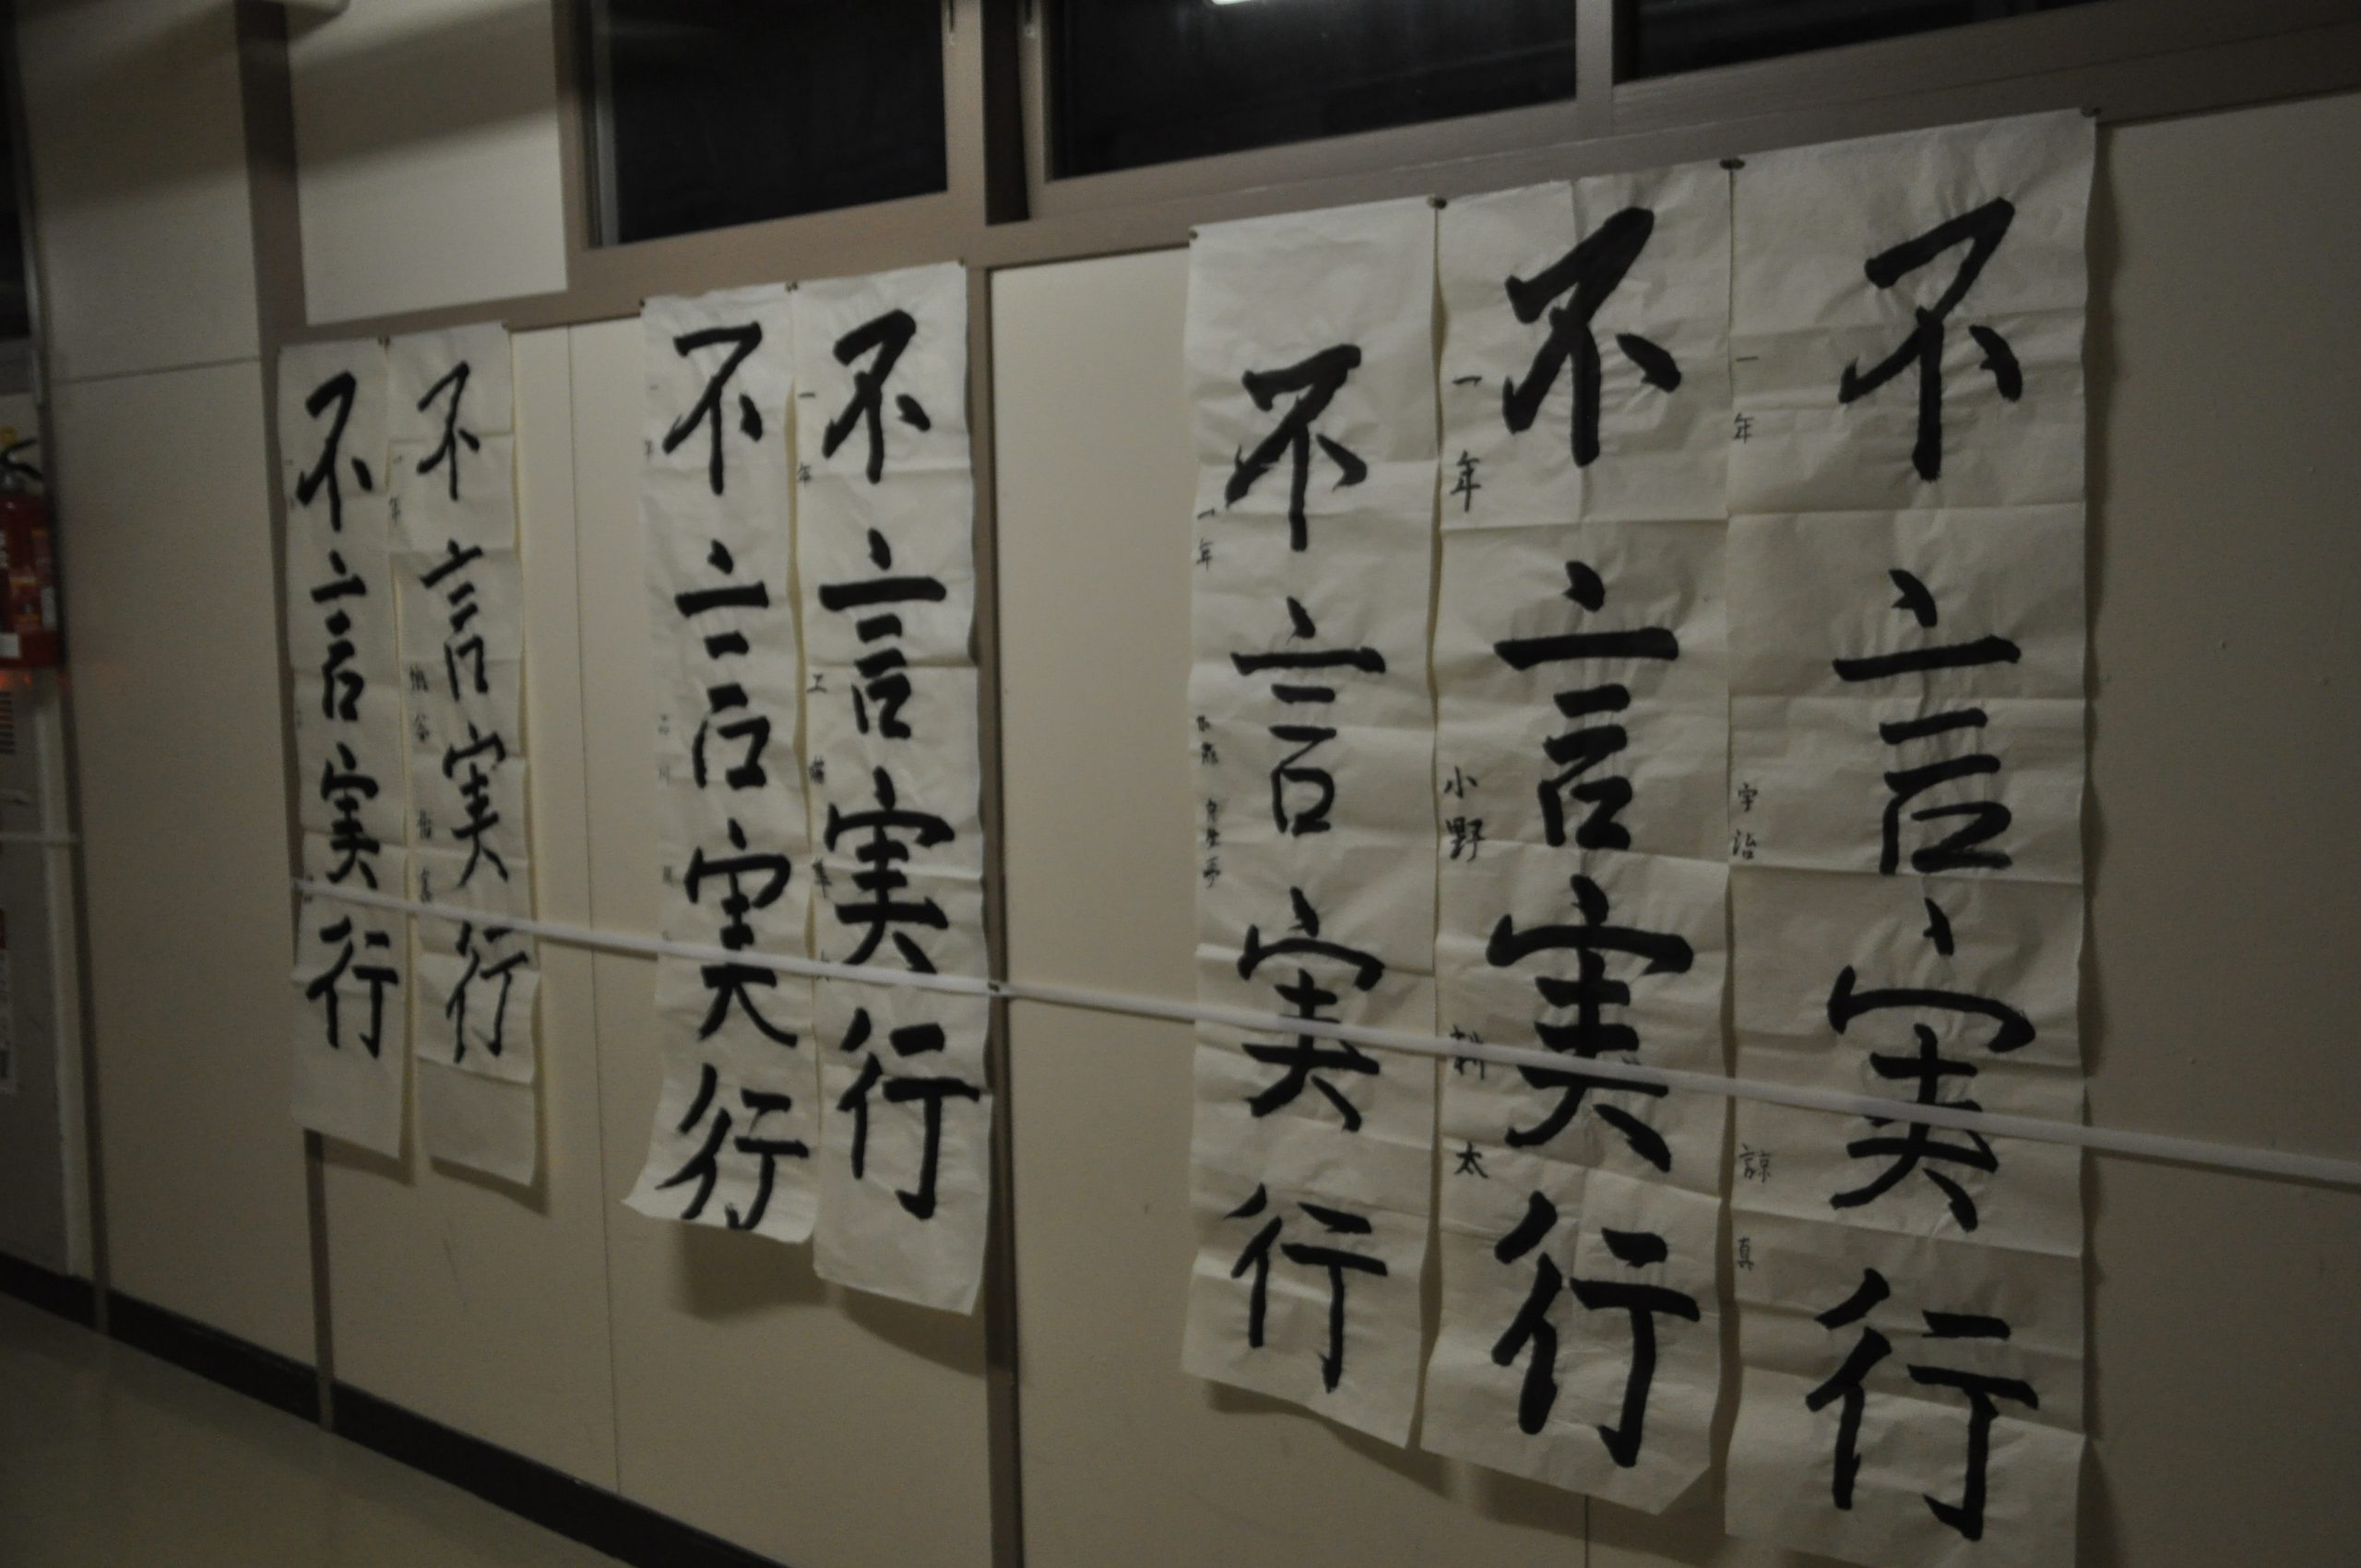 不言実行
一年 宇治 諒真
不言実行
一年 小野 耕太
不言実行
一年
不言実行
一年 工藤
不言実行
不言実行
一年
不言実行